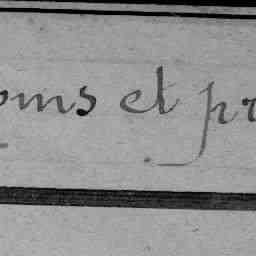 oms et pr